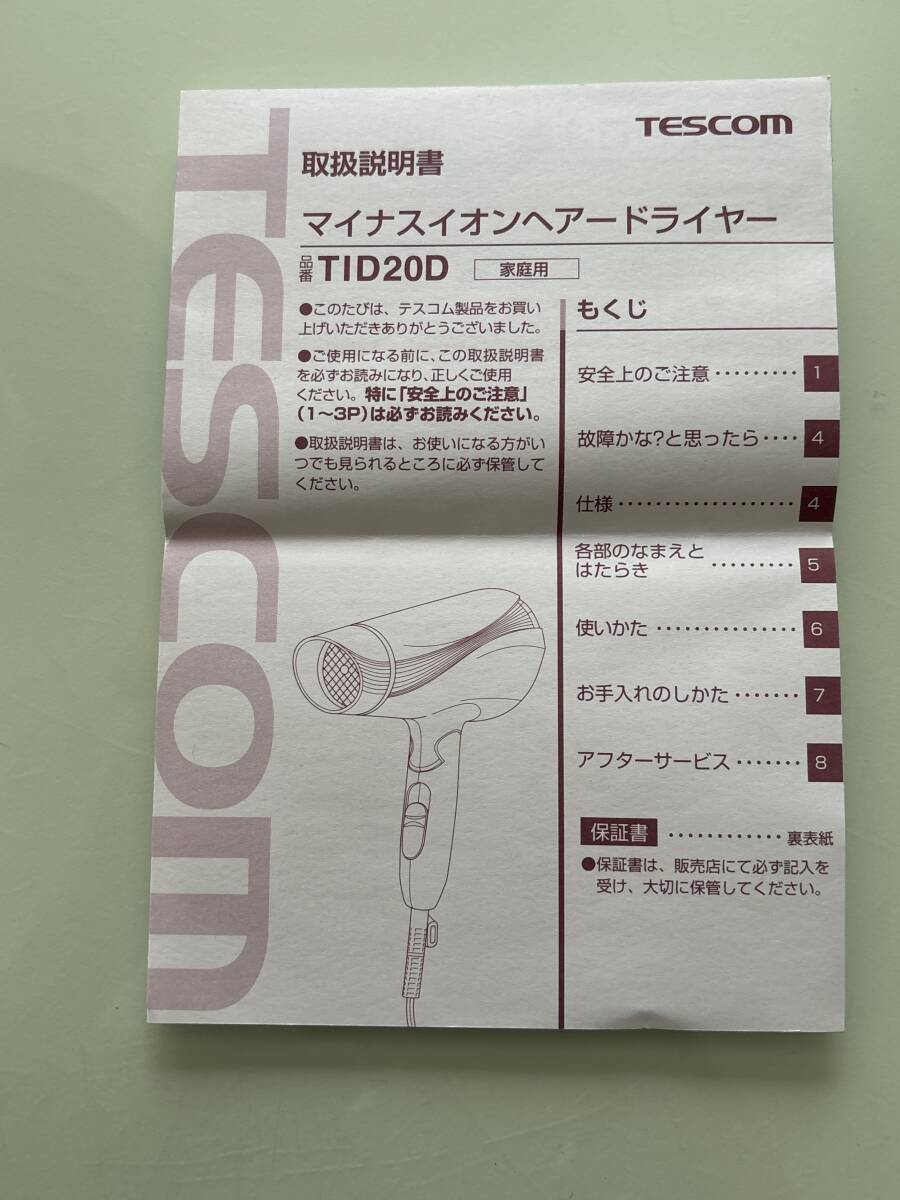 TESCOM
TESCOM
取扱説明書
マイナスイオンヘアードライヤー
品番 TID20D 家庭用
●このたびは、テスコム製品をお買い
上げいただきありがとうございました。
●ご使用になる前に、この取扱説明書
を必ずお読みになり、正しくご使用
ください。特に「安全上のご注意」
(1〜3P)は必ずお読みください。
●取扱説明書は、お使いになる方がい
つでも見られるところに必ず保管して
ください。
もくじ
安全上のご注意 ········· 1
故障かな?と思ったら ···· 4
仕様 ··················· 4
各部のなまえと
はたらき ········· 5
使いかた ··············· 6
お手入れのしかた ······· 7
アフターサービス ······· 8
保証書 ············ 裏表紙
●保証書は、販売店にて必ず記入を
受け、大切に保管してください。